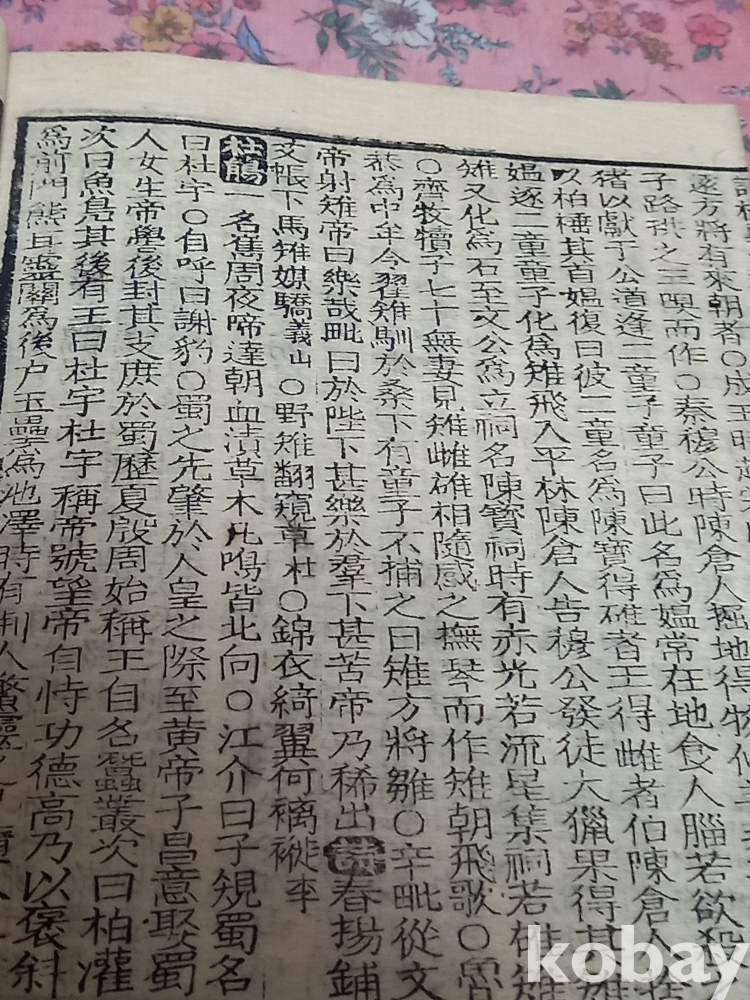 遠方將有來朝者○成王時
子路拱之三嗅而作○秦穆公時陳倉人掘地得物
猪以獻于公道逢二童子童子曰此名爲媪常在地食人腦若欲殺
以柏棰其首媪復曰彼二童名爲陳寶得雄者王得雌者伯陳倉人
媪逐二童童子化爲雉飛入平林陳倉人告穆公發徒大獵果得其雌
雉又化爲石至文公爲立祠名陳寶祠時有赤光若流星集祠若雄雉
○齊牧犢子七十無妻見雉雌雄相隨感之撫琴而作雉朝飛歌○魯
恭爲中牟令有雉馴於桑下有童子不捕之曰雉方將雛○辛毗從文
帝射雉帝曰樂哉毗曰於陛下甚樂於羣下甚苦帝乃稀出 春揚鋪
艾帳下馬雉媒驕義山○野雉翻窺草杜○錦衣綺翼何褵褷李
杜鵑一名雟周夜啼達朝血漬草木凡鳴皆北向○江介曰子規蜀名
曰杜宇○自呼曰謝豹○蜀之先肇於人皇之際至黄帝子昌意娶蜀
人女生帝嚳後封其支庶於蜀歷夏殷周始稱王自名蠶叢次曰柏灌
次曰魚鳧其後有王曰杜宇杜宇稱帝號望帝自恃功德高乃以褒斜
爲前門熊耳靈關爲後户玉壘爲池澤時有荆人鱉靈
kobay